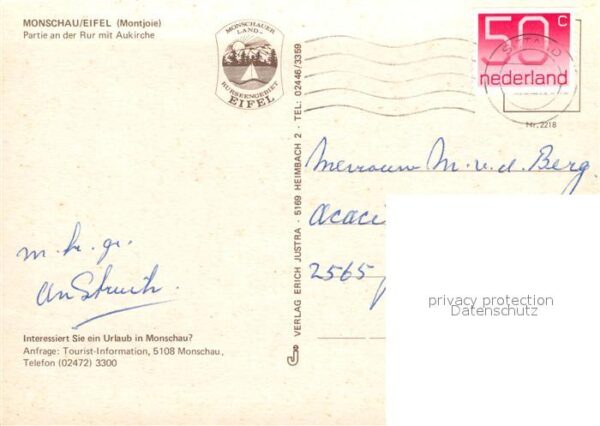 MONSCHAU/EIFEL (Montjoie)
Partie an der Rur mit Aukirche
MONSCHAUER
LAND
RURSEENGEBIET
EIFEL
50 c
nederland
Nr. 2218
VERLAG ERICH JUSTRA · 5169 HEIMBACH 2 · TEL: 02446/3359
Mevrouw M. v. d. Berg.
Acaci
2565
m. hr. gr.
Interessiert Sie ein Urlaub in Monschau?
Anfrage: Tourist-Information, 5108 Monschau,
Telefon (02472) 3300
privacy protection
Datenschutz